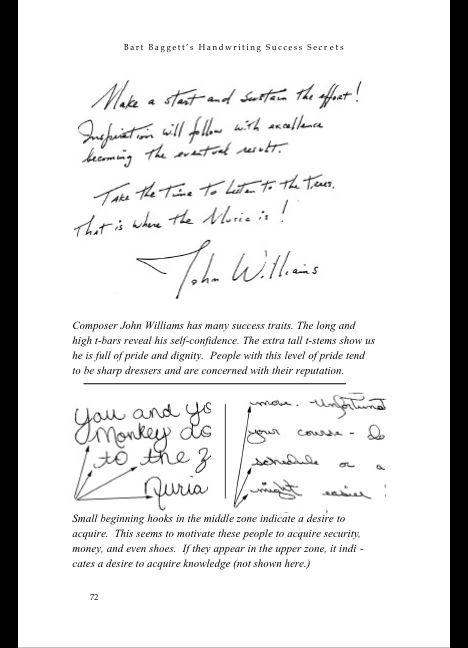 Bart Baggett's Handwriting Success Secrets
Make a start and sustain the effort!
Inspiration will follow with excellence
becoming the eventual result.
Take the Time To Listen To the Trees,
That is where the Music is!
John Williams
Composer John Williams has many success traits. The long and
high t-bars reveal his self-confidence. The extra tall t-stems show us
he is full of pride and dignity. People with this level of pride tend
to be sharp dressers and are concerned with their reputation.
you and yo
Monkey do
to the z
Nuria
more. Unfortunat
your course - Do
schedule or a
might easier
Small beginning hooks in the middle zone indicate a desire to
acquire. This seems to motivate these people to acquire security,
money, and even shoes. If they appear in the upper zone, it indi -
cates a desire to acquire knowledge (not shown here.)
72